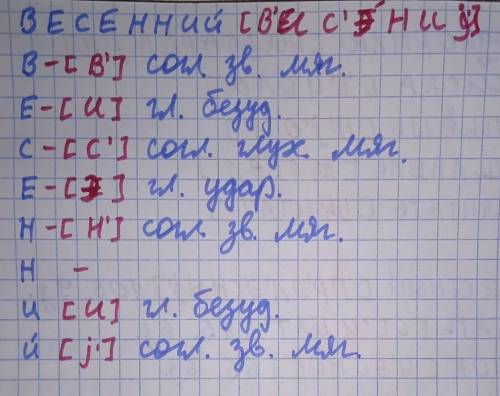 ВЕСЕННИЙ [В'И С'Э Н И Й]
В - [В'] согл. зв. мяг.
Е - [И] гл. безуд.
С - [С'] согл. глух. мяг.
Е - [Э] гл. удар.
Н - [Н'] согл. зв. мяг.
Н -
И [И] гл. безуд.
Й [j'] согл. зв. мяг.